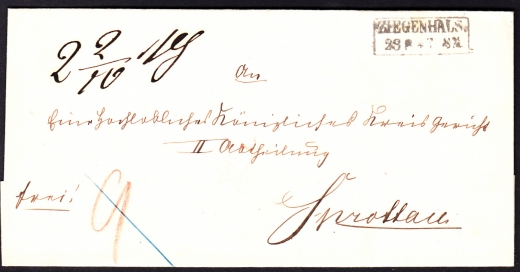 ZIEGENHALS.
2 2/10
An
Eine Hochlöbliches Königliches Kreis Gericht
II Abtheilung
frei!
Sprottau